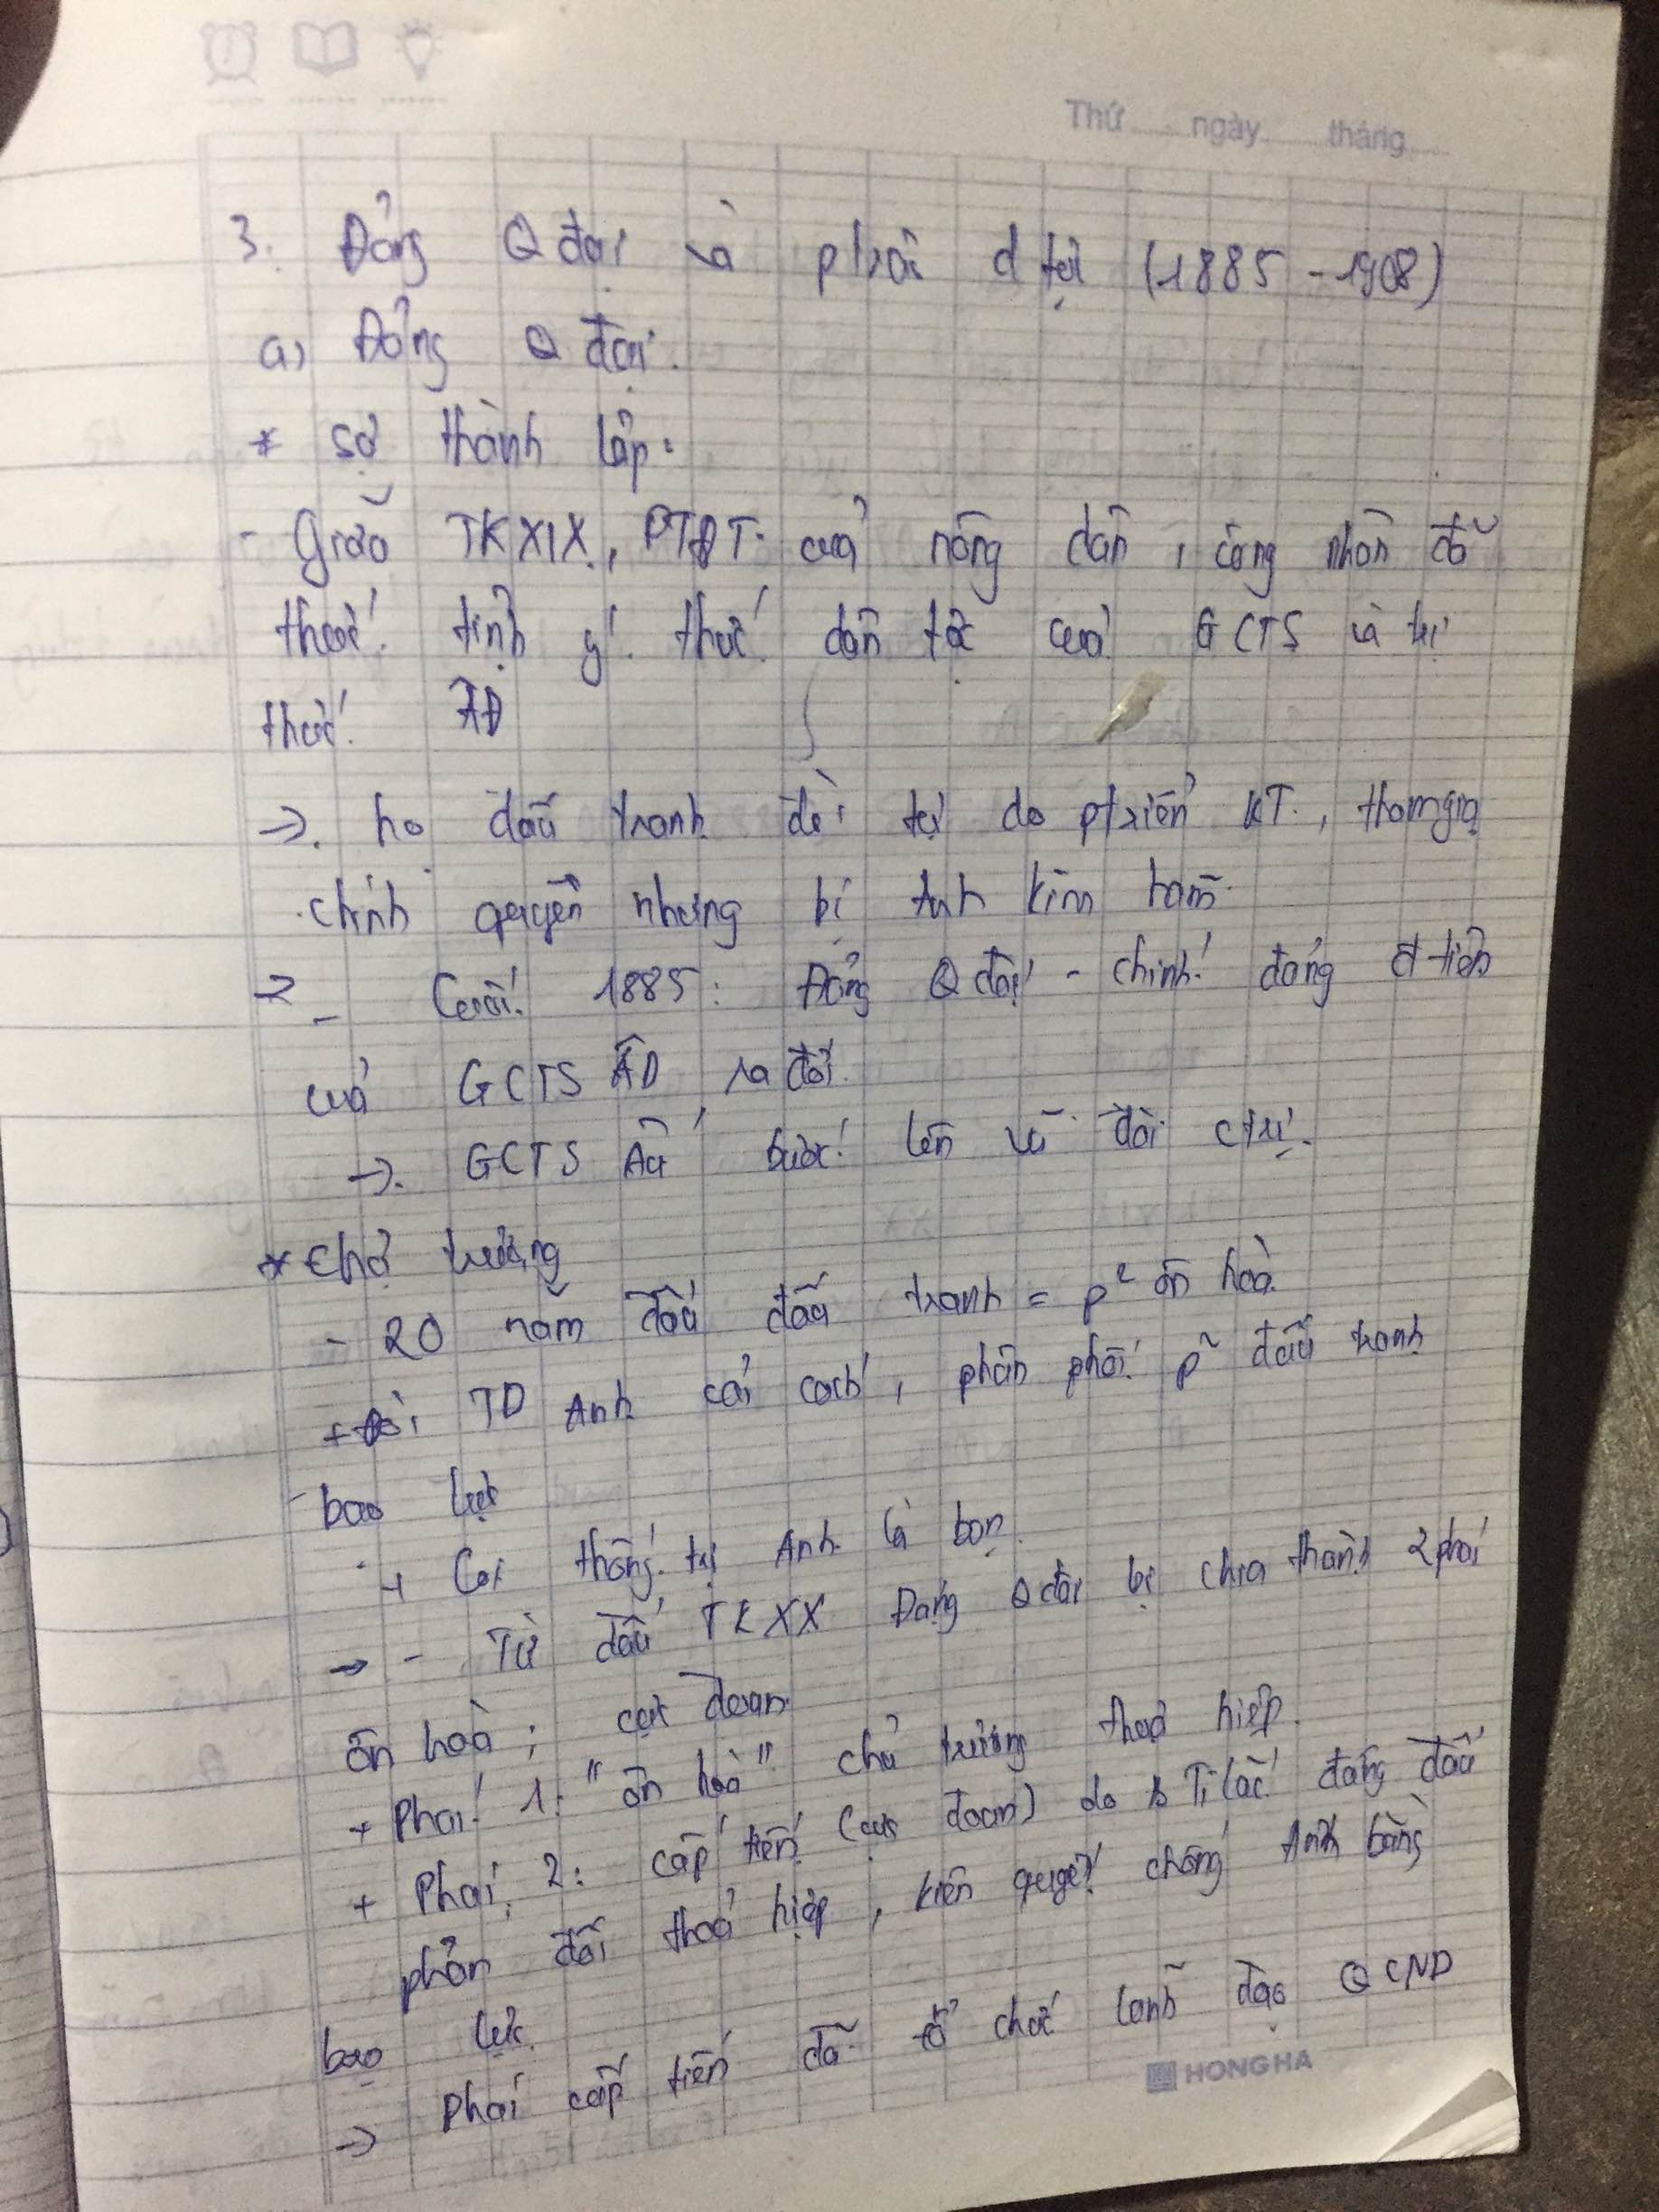 Thứ ngày tháng
3. Đảng Q đại và ptrào dtộc (1885 - 1908)
a) Đảng Q đại.
* Sự thành lập:
- Giữa TK XIX, PTĐT của nông dân, công nhân đã
thức tỉnh ý thức dân tộc của GCTS và trí
thức ÂĐ
→ họ đấu tranh đòi tự do ptriển KT, tham gia
chính quyền nhưng bị Anh kìm hãm
- Cuối 1885: Đảng Q đại - chính đảng đ tiên
của GCTS ÂĐ ra đời.
→ GCTS Ấn bước lên vũ đài ctrị.
* Chủ trương
- 20 năm đầu đấu tranh = p² ôn hoà.
+ Đòi TD Anh cải cách, phản phối p² đấu tranh
bạo lực
+ Coi thống trị Anh là bạn.
→ - Từ đầu TK XX Đảng Q đại bị chia thành 2 phái
ôn hoà; cực đoan.
+ Phái 1: "ôn hoà" chủ trương thoả hiệp.
+ Phái 2: cấp tiến (cực đoan) do Tilắc đứng đầu
phản đối thoả hiệp, kiên quyết chống Anh bằng
bạo lực.
→ Phái cấp tiến đã tổ chức lãnh đạo QCND
HONG HA